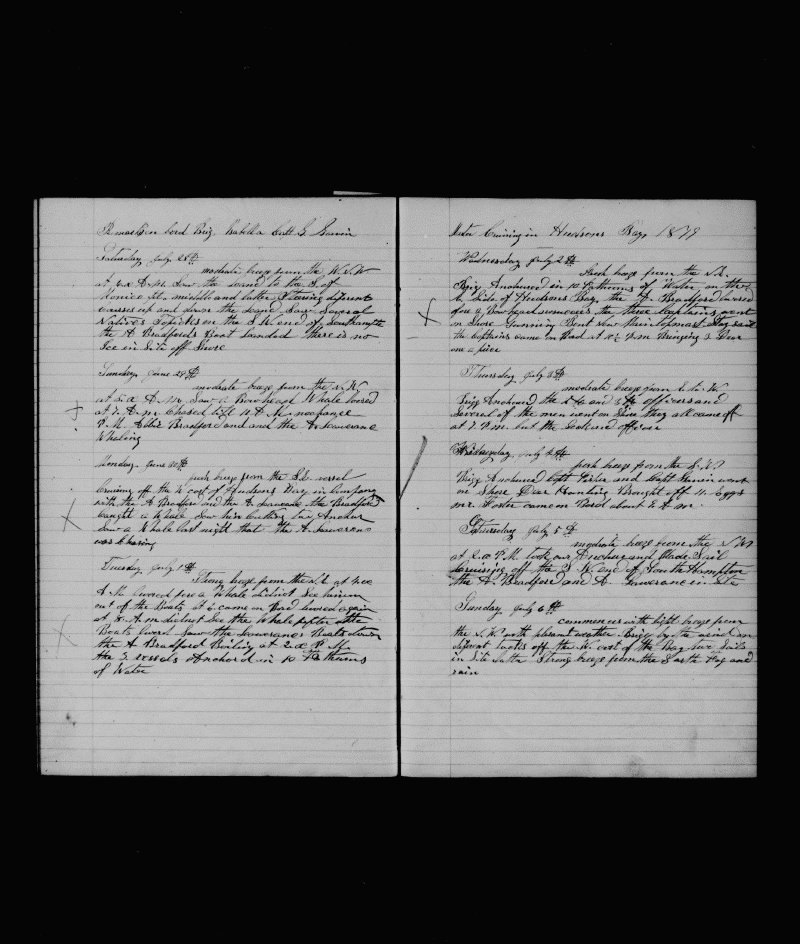 Remarks on bord Brig Isabella Capt G Garvin
Saturday July 28th
moderate breeze from the W.N.W
at 4.00 A.M. Saw the land to the S. of
middle and latter Stering difrunt
courses up and down the land Saw Several
Natives on the S.W. end of Southampton
the A Bradfords Boat landed there is no
Ice in Site off Shore
Sunday June 29th
moderate breeze from the N.W.
at 5.00 A.M. Saw a Bowhead Whale lowed
at 7. A.M. Chased till 11 A.M. no chance
P.M. Abbie Bradford and the A. Lawrance
Whaling
Monday June 30th
fresh breeze from the S.E. vessel
Cruising off the W coast of Hudsons Bay in Company
with the A Bradford and the A. Lawrance the Bradford
caught a Whale Saw him cutting in at Anchor
Saw a Whale last night that the A. Lawrance
was Chasing
Tuesday July 1th
Strong breeze from the N.E. at 4.00
A.M. lowered for a Whale did not See him
out of the Boats at 6 came on Bord lowed again
at 8. A.M. did not See the Whale after the
Boats lowed Saw the Lawrances Boats down
the A Bradford Boiling at 2.00 P.M.
the 3 vessels Anchord in 10 Fathums
of Water
Cruising in Hudsons Bay 1879
Wednesday July 2th
Fresh breeze from the N.E.
Brig Anchored in 10 Fathoms of Water on the
side of Hudsons Bay the A. Bradford lowed
for a Bowhead the three Captains went
on Shore Gunning
the Captains came on Bord at 10½ P.M. Bringing 3 Deer
on a pice
Thursday July 3th
moderate breeze from
Brig Anchored the and 3th officers and
Several of the men went on Shore they all came off
at 7. P.M. but the Second officer
Wednesday July 4th
fresh breeze from the S.W.
Brig Anchored Capt and Capt Garvin went
on Shore Dear Hunting Brought off 11 Eggs
mr. Foster came on Bord about 2 A.M.
Saturday July 5th
moderate breeze from the NW
at 2.00 P.M. took our Anchor and Made Sail
Cruising off the S.W. end of South Hampton
the A. Bradford and A. Lawrance in Site
Sunday July 6th
commences with light breeze from
the N.W. with plesant weather Brig by the wind on
difrant tacks off the W. cost of the Bay two Sails
in Site Latter Strong breeze from the South Fog and
rain